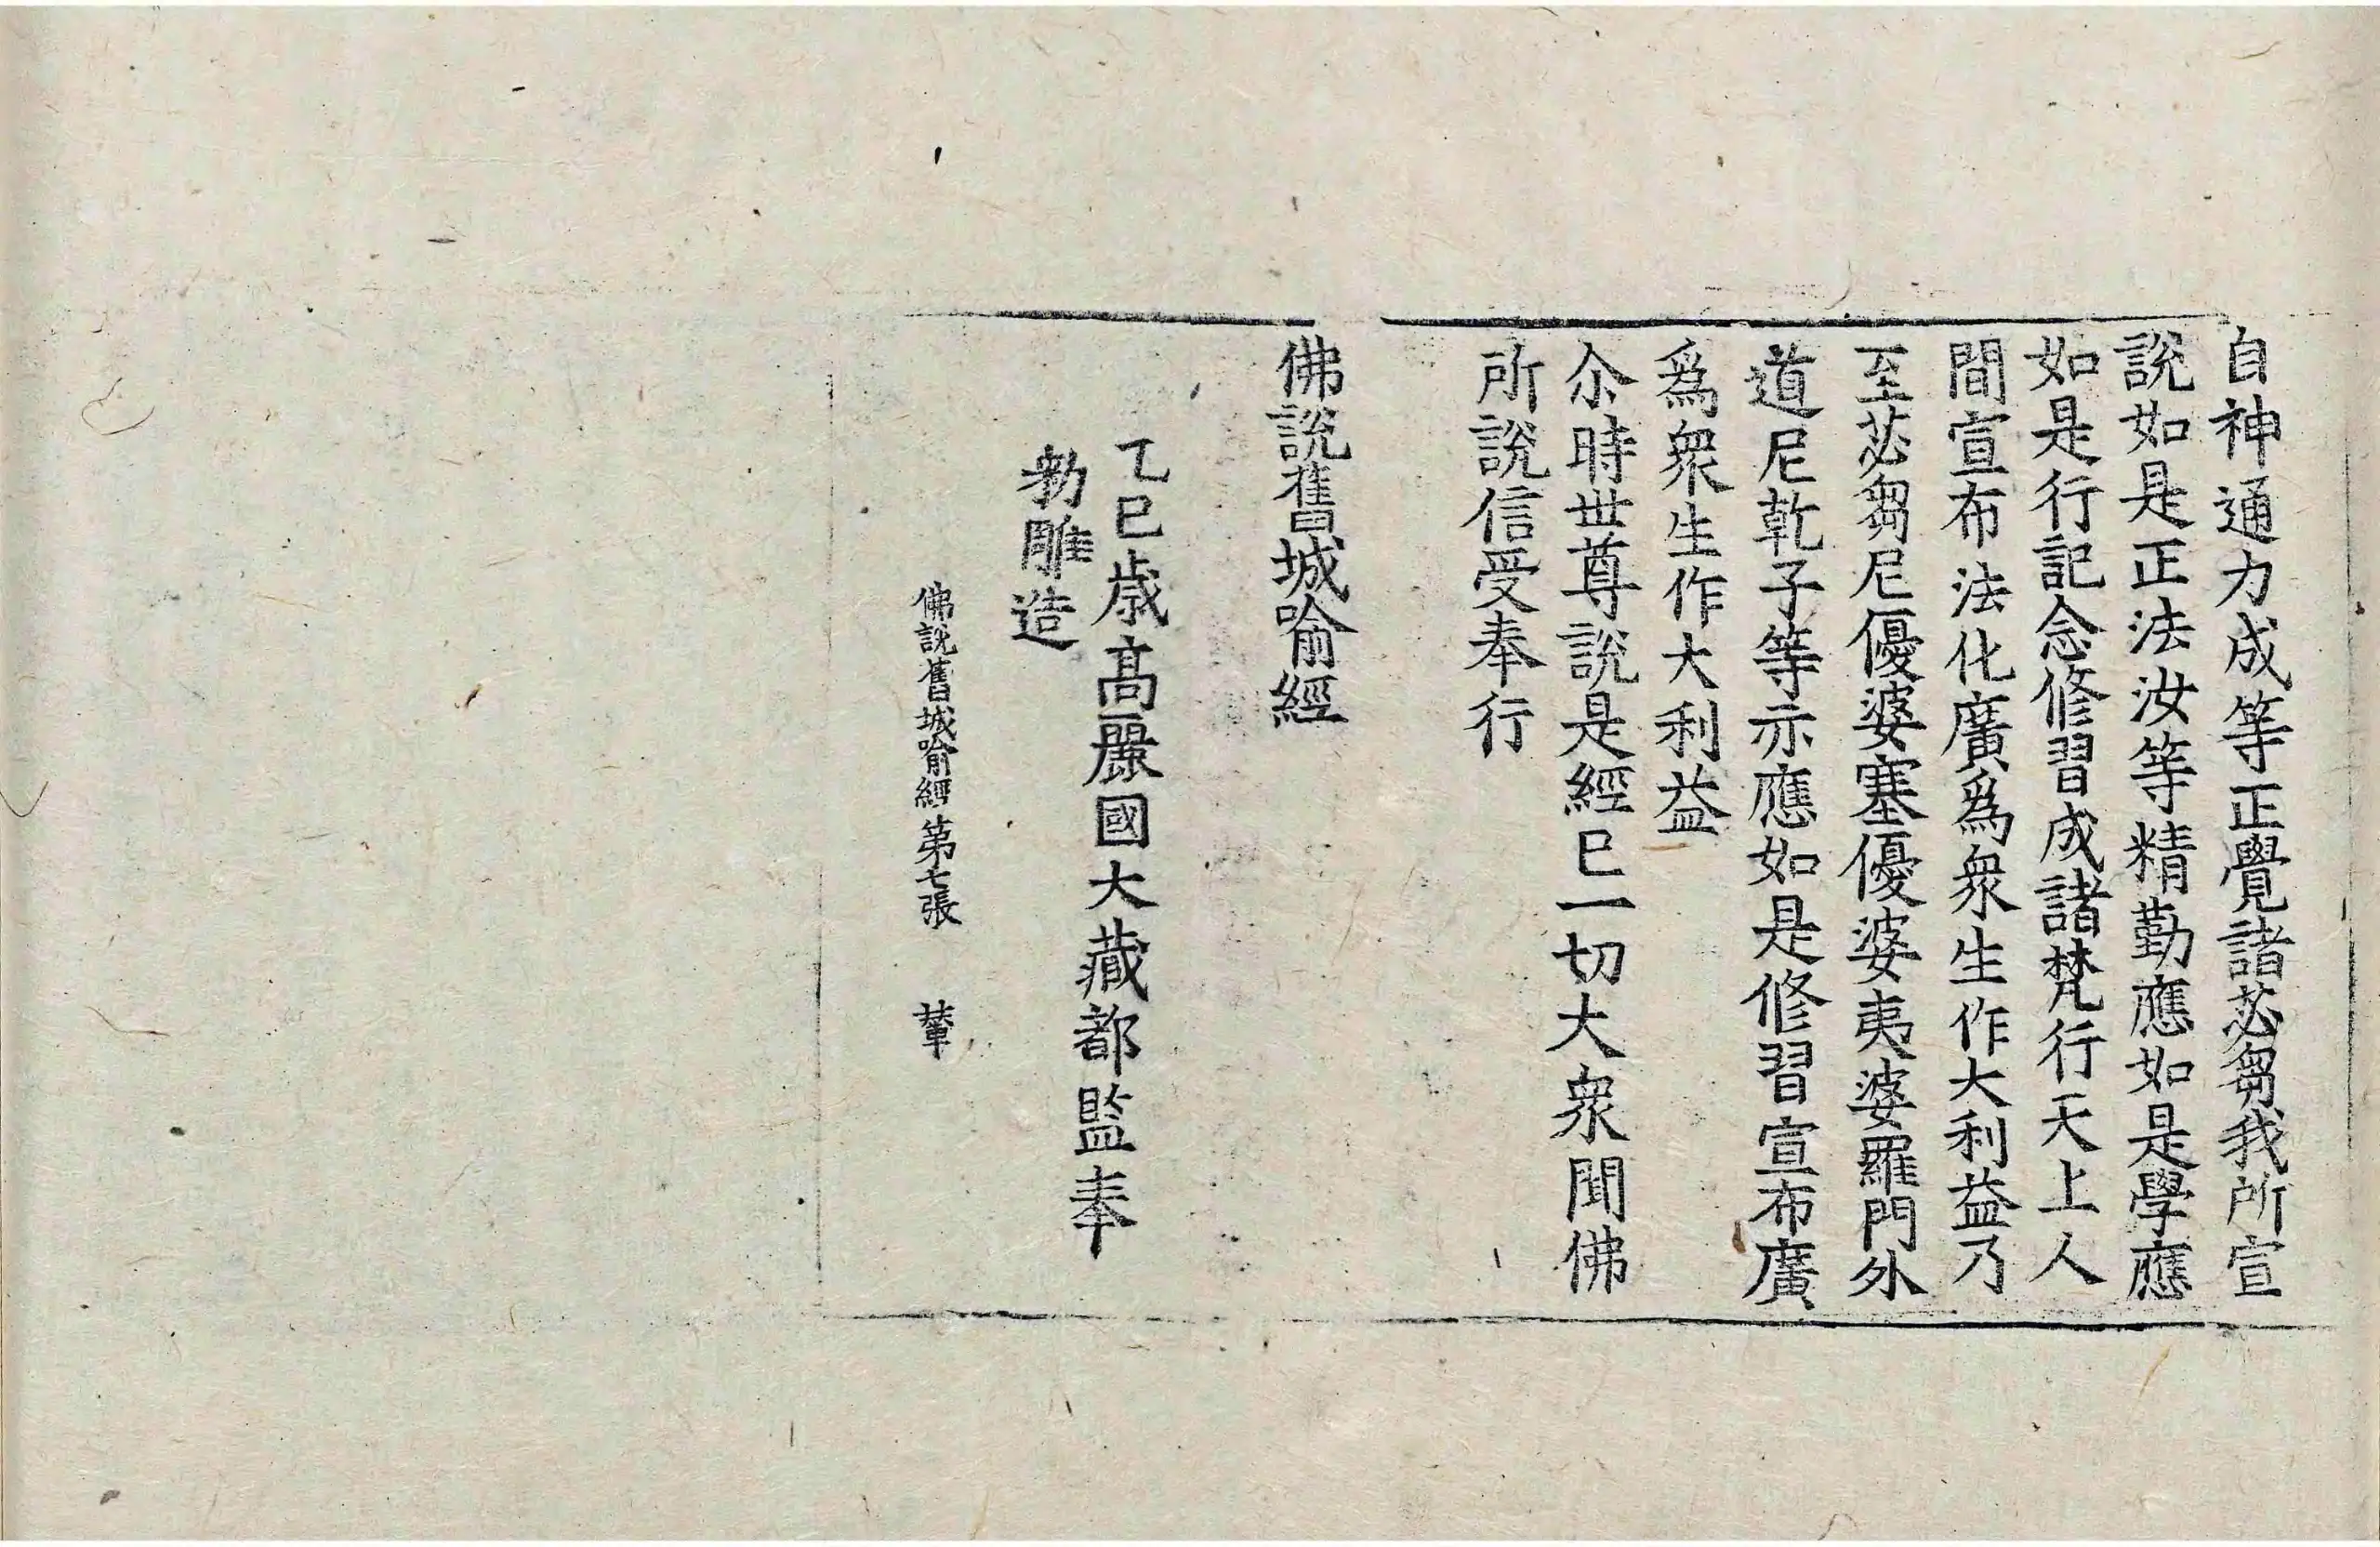 自神通力成等正覺諸苾芻我所宣
說如是正法汝等精勤應如是學應
如是行記念修習成諸梵行天上人
間宣布法化廣爲衆生作大利益乃
至苾芻尼優婆塞優婆夷婆羅門外
道尼乾子等示應如是修習宣布廣
爲衆生作大利益
尒時世尊說是經巳一切大衆聞佛
所說信受奉行
佛說舊城喻經
乙巳歳髙麗國大藏都監奉
勑雕造
佛說舊城喻經 第七張 輦